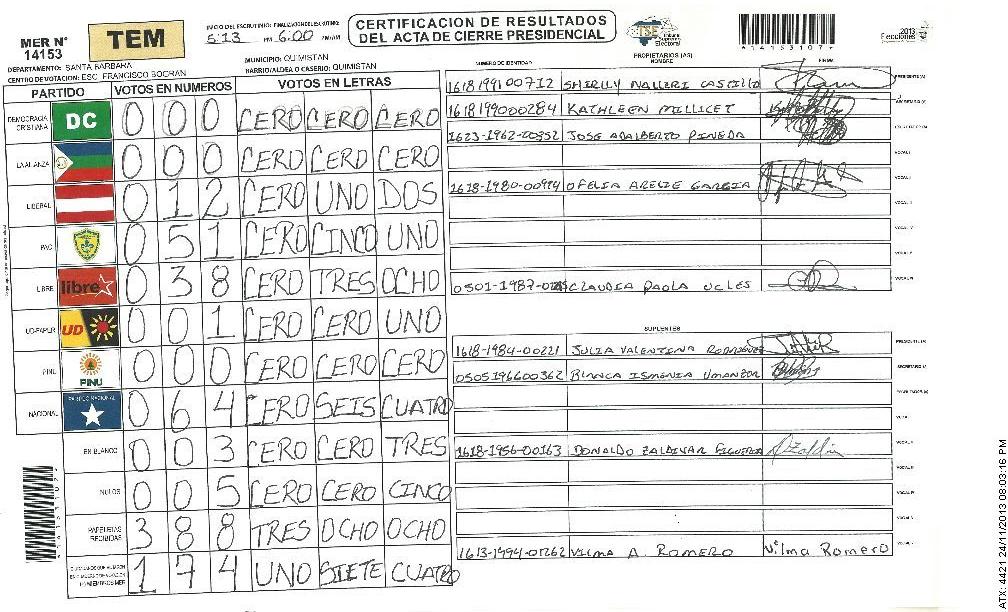 MER N° 14153
TEM
INICIO DEL ESCRUTINIO: 5:13 PM
FINALIZACION DEL ESCRUTINIO: 6:00
CERTIFICACION DE RESULTADOS
DEL ACTA DE CIERRE PRESIDENCIAL
TSE
Tribunal Supremo Electoral
2013
Elecciones
DEPARTAMENTO: SANTA BARBARA
MUNICIPIO: QUIMISTAN
CENTRO DE VOTACION: ESC. FRANCISCO BOGRAN
BARRIO/ALDEA O CASERIO: QUIMISTAN
PARTIDO VOTOS EN NUMEROS VOTOS EN LETRAS
DEMOCRACIA CRISTIANA DC 0 0 0 CERO CERO CERO
LA ALIANZA 0 0 0 CERO CERO CERO
LIBERAL 0 1 2 CERO UNO DOS
PAC 0 5 1 CERO CINCO UNO
LIBRE libre 0 3 8 CERO TRES OCHO
UD-FAPER UD 0 0 1 CERO CERO UNO
PINU PINU 0 0 0 CERO CERO CERO
NACIONAL PARTIDO NACIONAL 0 6 4 CERO SEIS CUATRO
EN BLANCO 0 0 3 CERO CERO TRES
NULOS 0 0 5 CERO CERO CINCO
PAPELETAS RECIBIDAS 3 8 8 TRES OCHO OCHO
1 7 4 UNO SIETE CUATRO
PROPIETARIOS (AS)
NUMERO DE IDENTIDAD NOMBRE FIRMA
1618199100712 SHIRLLY NALLERI CASTILLO
1618199000284 KATHLEEN MILLICET
1623-1962-00352 JOSE ADALBERTO PINEDA
1618-1980-00974 OFELIA ARELIE GARCIA
0501-1987- CLAUDIA PAOLA UCLES
SUPLENTES
1618-1984-00221 JULIA VALENTINA RODRIGUEZ
0505196600362 BLANCA ISMENIA UMANZOR
1618-1956-00163 DONALDO ZALDIVAR FIGUEROA
1613-1994-01262 VILMA A. ROMERO Vilma Romero
ATX: 4421 24/11/2013 08:03:16 PM